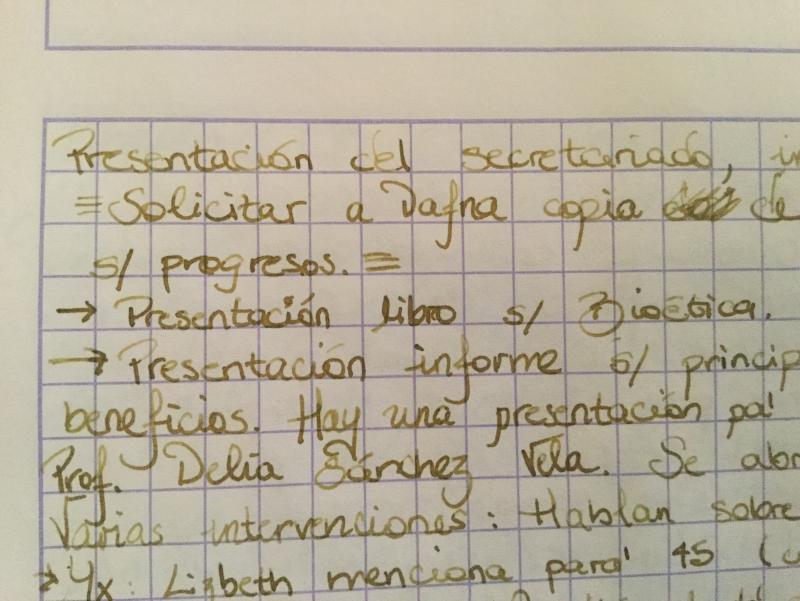 Presentación del secretariado, in
= Solicitar a Dafna copia de
s/ progresos. =
→ Presentación libro s/ Bioética.
→ Presentación informe s/ princip
beneficios. Hay una presentación pa'
Prof. Delia Sánchez Vela. Se abor
Varias intervenciones: Hablan sobre
→ Mx: Lizbeth menciona para' 45 (